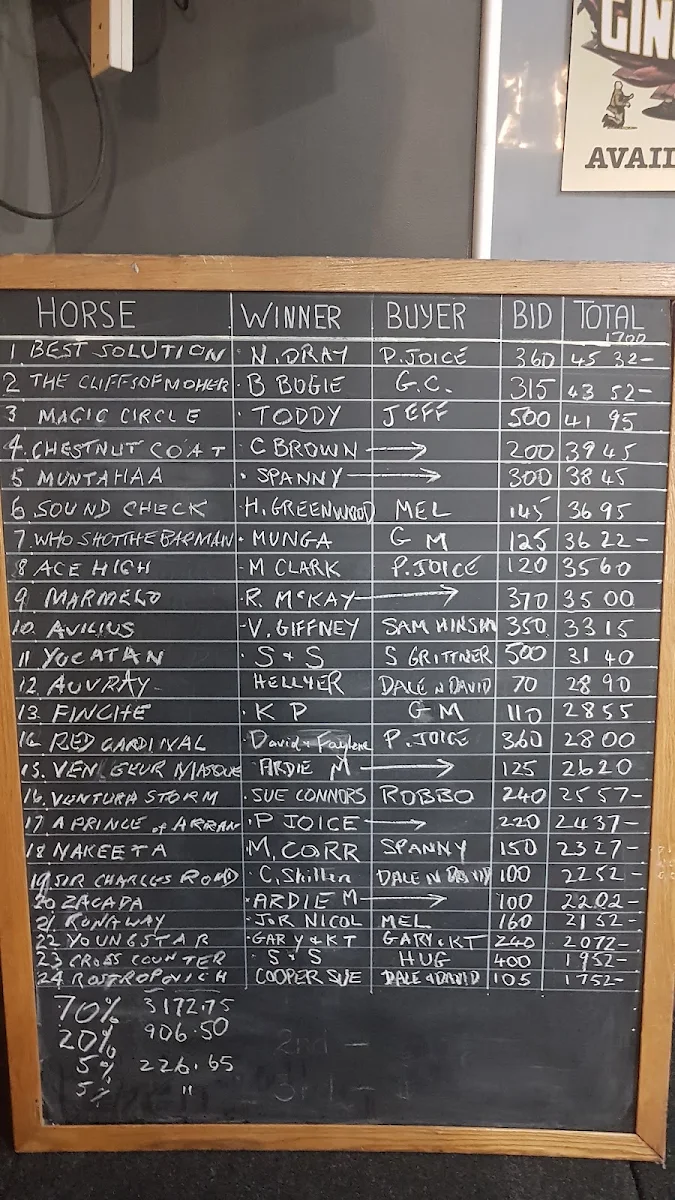 GIN
AVAIL
HORSE WINNER BUYER BID TOTAL
1700
1 BEST SOLUTION N. DRAY P. JOICE 360 4532-
2 THE CLIFFSOFMOHER B BUGIE G.C. 315 4352-
3 MAGIC CIRCLE TODDY JEFF 500 4195
4. CHESTNUT COAT C BROWN → 200 3945
5 MUNTAHAA SPANNY → 300 3845
6 SOUND CHECK H. GREENWOOD MEL 145 3695
7. WHO SHOTTHEBARMAN MUNGA G M 125 3622-
8 ACE HIGH M CLARK P. JOICE 120 3560
9. MARMELO R. McKAY → 370 3500
10. AVILIUS V. GIFFNEY SAM 350 3315
11 YUCATAN S + S S GRITTNER 500 3140
12. AUVRAY HELLYER DALE N DAVID 70 2890
13. FINCHE K P G M 110 2855
14. RED CARDINAL David + Faylene P. JOICE 360 2800
15. VEN GEUR MASQUE ARDIE M → 125 2620
16. VENTURA STORM SUE CONNORS ROBBO 240 2557-
17 A PRINCE of ARRAN P JOICE → 220 2437-
18 NAKEETA M. CORR SPANNY 150 2327-
19 SIR CHARLES ROAD C. Shiller DALE N DAVID 100 2252-
20 ZACADA ARDIE M → 100 2202-
21 RUNAWAY J & R NICOL MEL 160 2152-
22 YOUNGSTAR GARY & KT GARY & KT 240 2072-
23 CROSS COUNTER S + S HUG 400 1952-
24 ROSTROPOVICH COOPER SUE DALE & DAVID 105 1752-
70% 3172.75
20% 906.50
5% 226.65
5% "
2nd -
3rd -